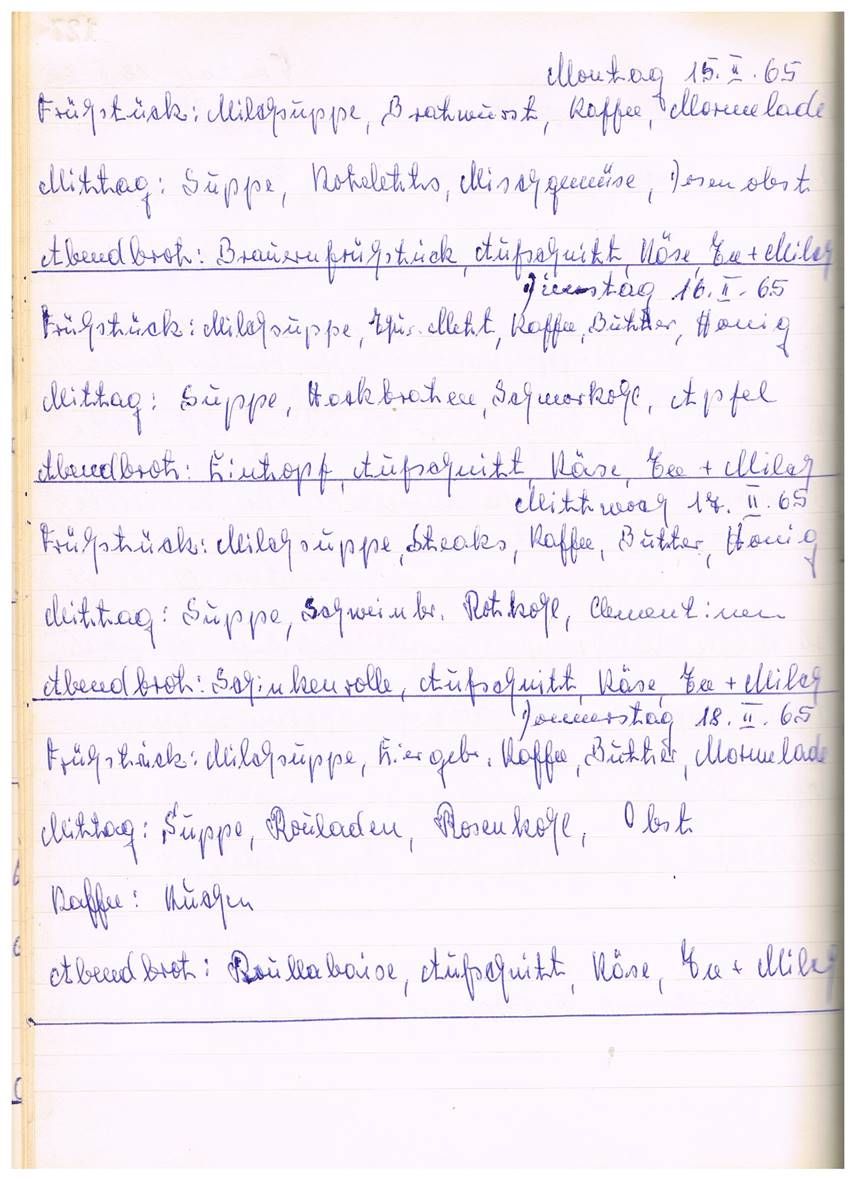 Montag 15. II. 65
Frühstück: Milchsuppe, Brahwurst, Kaffee, Mormelade
Mittag: Suppe, Koteletts, Mischgemüse, Dosenobst
Abendbrot: Brauernfrühstück, Aufschnitt, Käse, Tee + Milch
Dienstag 16. II. 65
Frühstück: Milchsuppe, Kaffee, Butter, Honig
Mittag: Suppe, Hackbraten, Schmorkohl, Apfel
Abendbrot: Eintopf, Aufschnitt, Käse, Tee + Milch
Mittwoch 17. II. 65
Frühstück: Milchsuppe, Steaks, Kaffee, Butter, Honig
Mittag: Suppe, Schweinbr. Rotkohl, Clementinen
Abendbrot: Schinkenrolle, Aufschnitt, Käse, Tee + Milch
Donnerstag 18. II. 65
Frühstück: Milchsuppe, Eier gebr. Kaffee, Butter, Mormelade
Mittag: Suppe, Rouladen, Rosenkohl, Obst
Kaffee: Kuchen
Abendbrot: Boullabaise, Aufschnitt, Käse, Tee + Milch